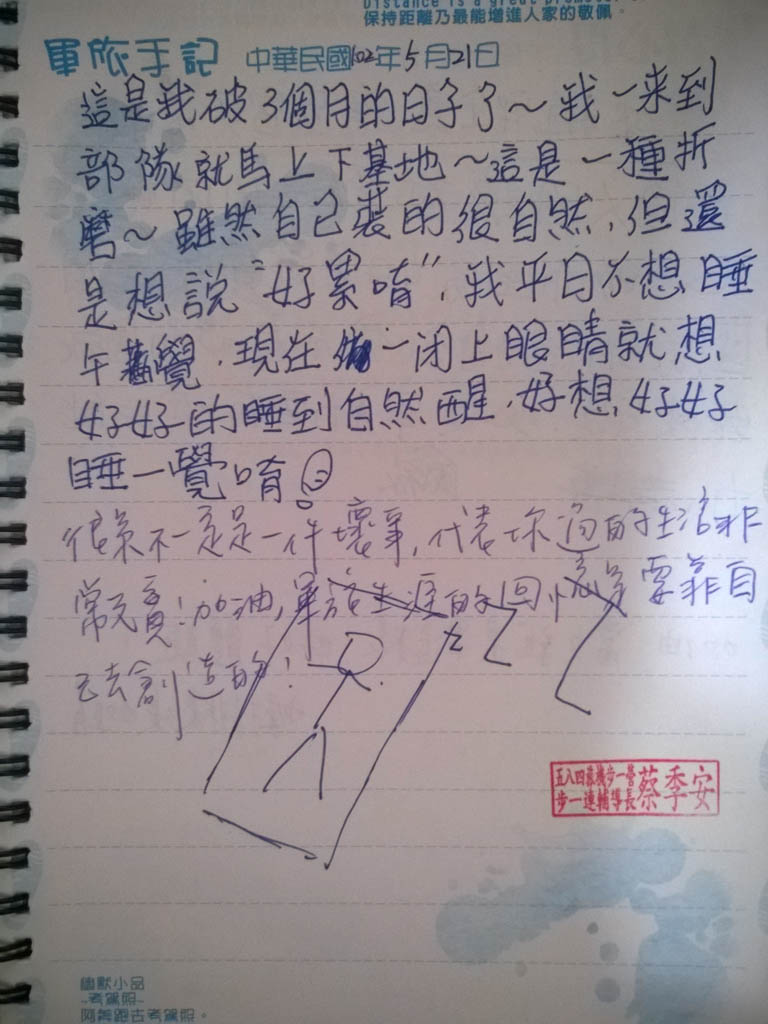 Distance is a great promoter
保持距離乃最能增進人家的敬佩。
軍旅手記 中華民國102年5月21日
這是我破3個月的日子了~我一來到
部隊就馬上下基地~這是一種折
磨~雖然自己裝的很自然,但還
是想說"好累唷",我平日不想睡
午覺,現在一閉上眼睛就想
好好的睡到自然醒,好想,好好
睡一覺唷
很累不一定是一件壞事,代表你過的生活非
常充實!加油,軍旅生涯的回憶是要靠自
己去創造的!
五八四旅機步一營
步一連輔導長蔡季安
幽默小品
~考駕照~
阿舞跑去考駕照。